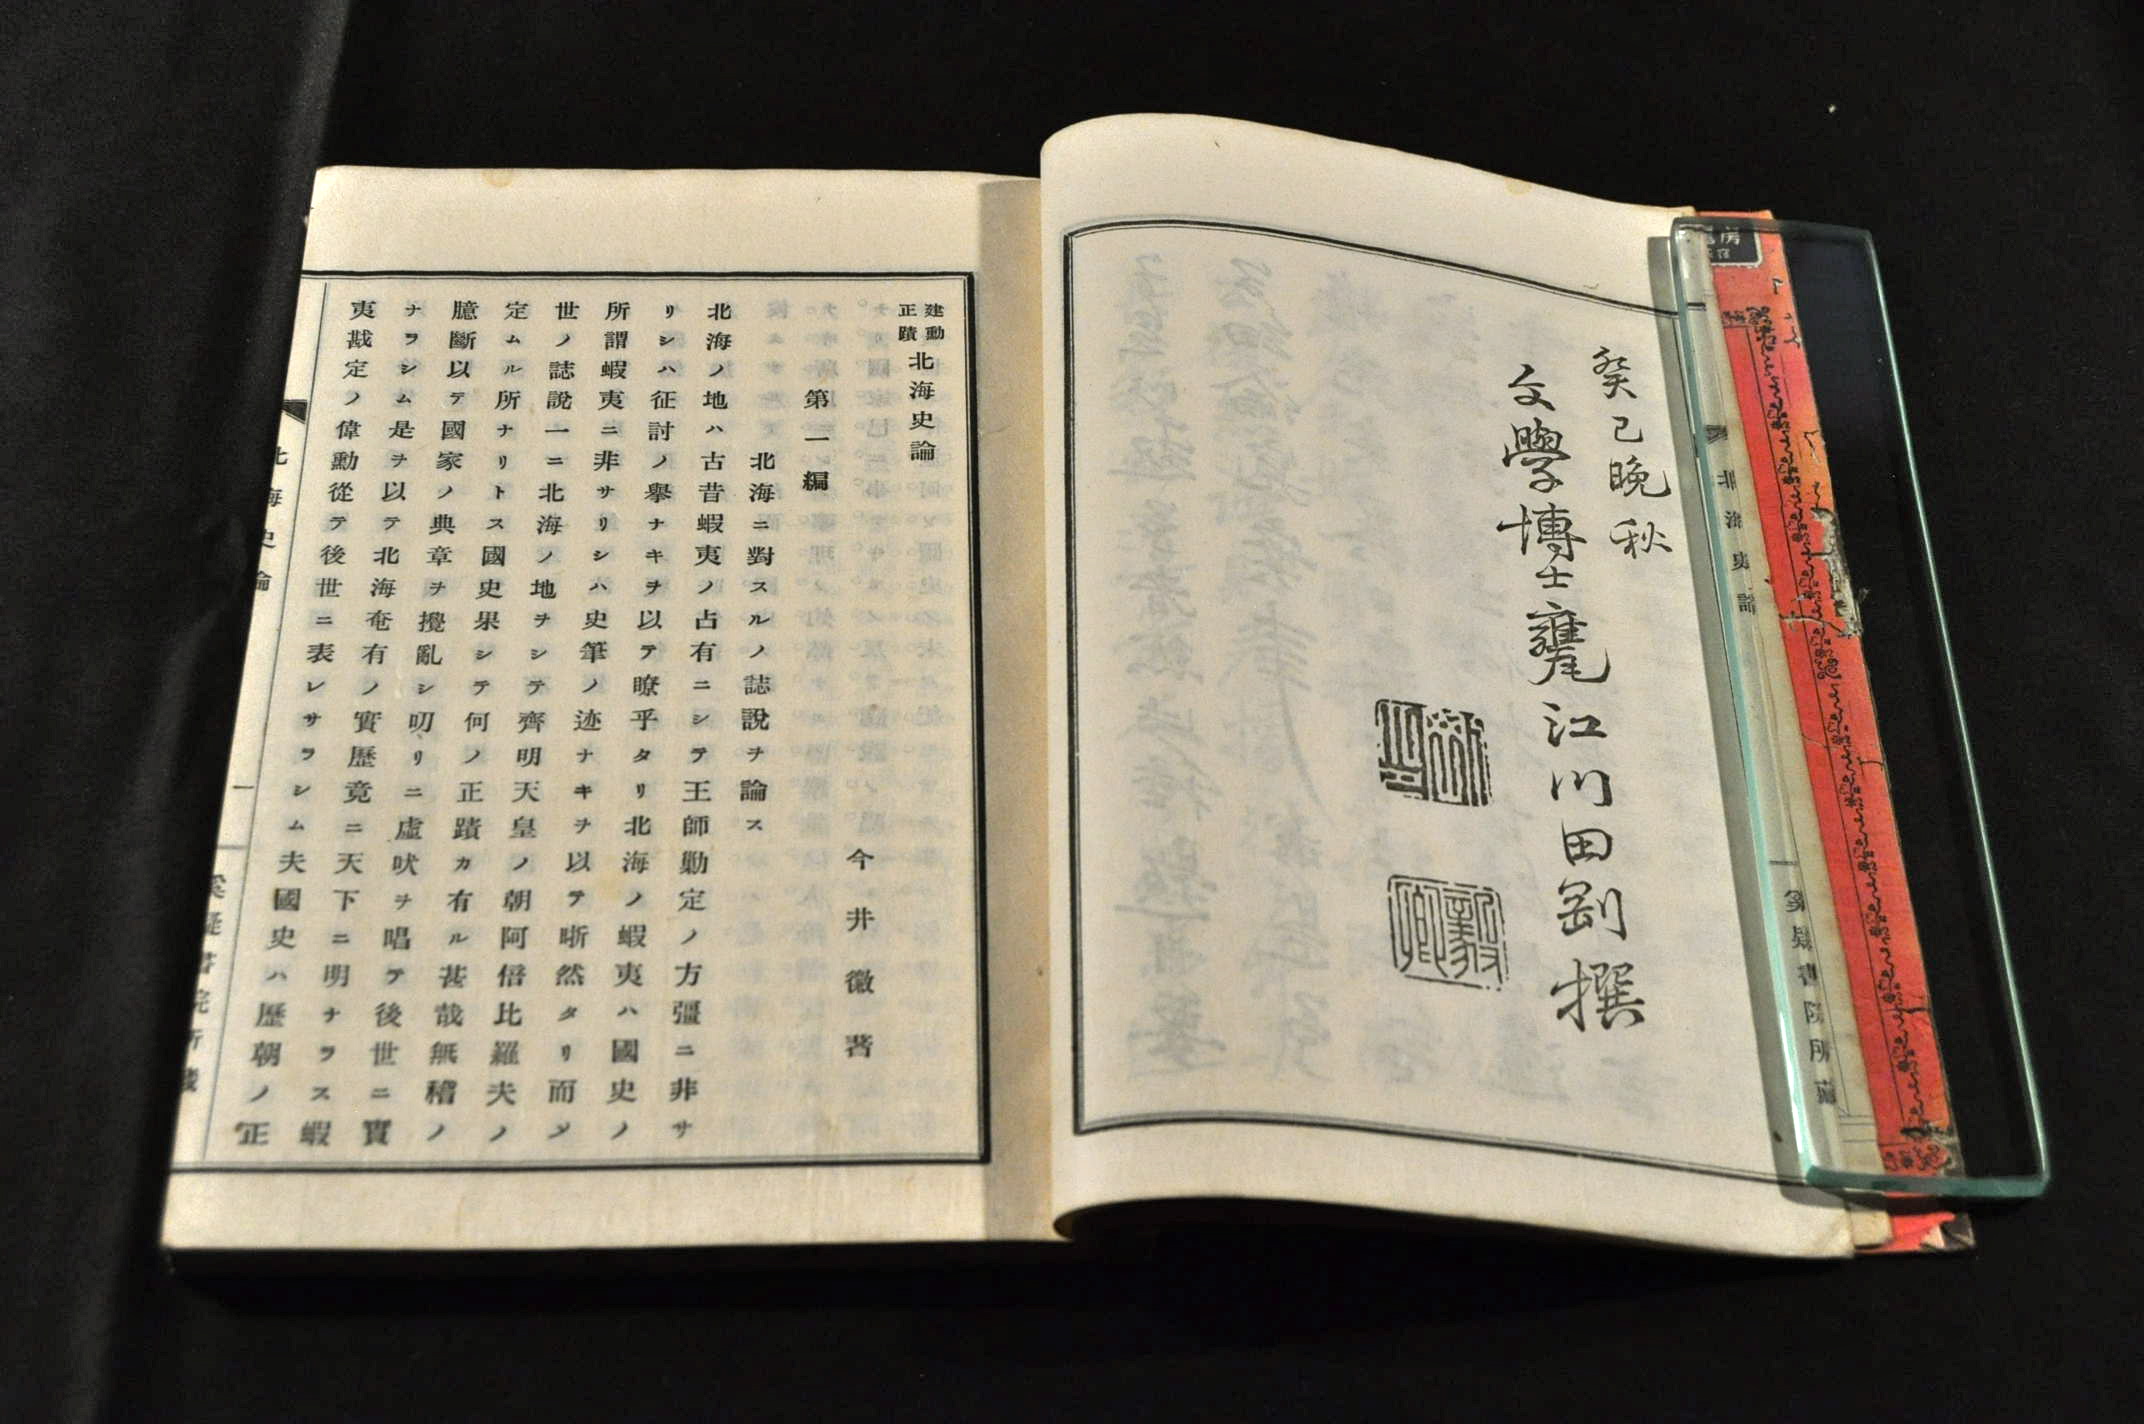 癸巳晩秋
文學博士甕江川田剛撰
毅卿
建勳
正蹟
北海史論
今井徽著
第一編
北海ニ對スルノ誌說ヲ論ス
北海ノ地ハ古昔蝦夷ノ占有ニシテ王師勦定ノ方彊ニ非サ
リシハ征討ノ擧ナキヲ以テ瞭乎タリ北海ノ蝦夷ハ國史ノ
所謂蝦夷ニ非サリシハ史筆ノ迹ナキヲ以テ晣然タリ而メ
世ノ誌說一ニ北海ノ地ヲシテ齊明天皇ノ朝阿倍比羅夫ノ
定ムル所ナリトス國史果シテ何ノ正蹟カ有ル甚哉無稽ノ
臆斷以テ國家ノ典章ヲ攪亂シ叨リニ虛吠ヲ唱テ後世ニ實
ナヲシム是ヲ以テ北海奄有ノ實歷竟ニ天下ニ明ナヲス蝦
夷戡定ノ偉勳從テ後世ニ表レサヲシム夫國史ハ歷朝ノ正
北海史論
一